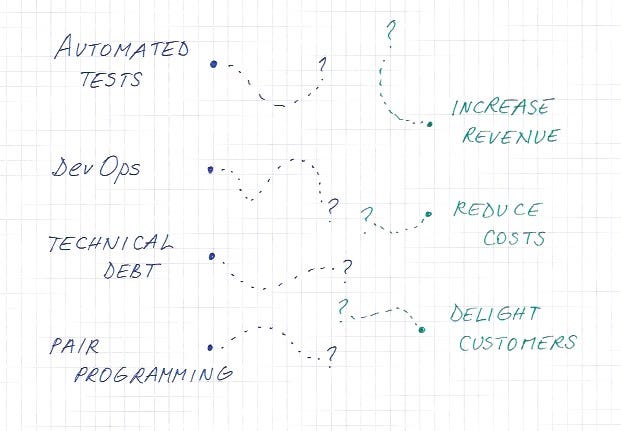 AUTOMATED
TESTS
?
?
INCREASE
REVENUE
DevOps
?
?
REDUCE
COSTS
TECHNICAL
DEBT
?
?
DELIGHT
CUSTOMERS
PAIR
PROGRAMMING
?